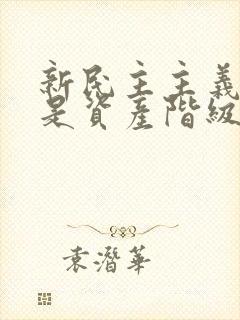 新民主主義
是資產階級
袁潛華